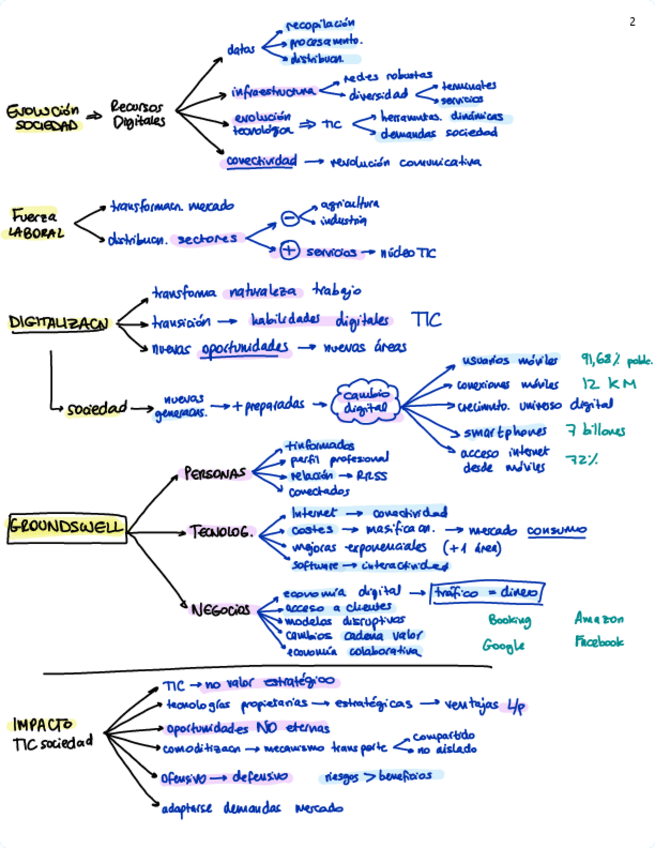 2
recopilación
datas
procesamnto.
distribucn.
EVOLUCIÓN SOCIEDAD ⇒ Recursos Digitales
infraestructura
redes robustas
diversidad
terminales
servicios
evolución tecnológica ⇒ TIC
herramntas. dinámicas
demandas sociedad
conectividad → revolución comunicativa
Fuerza LABORAL
transformacn. mercado
distribucn. sectores
− agricultura
industria
+ servicios → núcleo TIC
DIGITALIZACN
transforma naturaleza trabajo
transición → habilidades digitales TIC
nuevas oportunidades → nuevas áreas
sociedad → nuevas generacns. → + preparadas → cambio digital
usuarios móviles 91,68% poblc.
conexiones móviles 12 KM
crecimnto. universo digital
smartphones 7 billones
acceso internet desde móviles 72%
GROUNDSWELL
PERSONAS
+informados
perfil profesional
relación → RRSS
conectados
TECNOLOG.
Internet → conectividad
costes → masificacn. → mercado consumo
mejoras exponenciales (+1 área)
software → interactividad
NEGOCIOS
economía digital → tráfico = dinero
acceso a clientes
modelos disruptivos
cambios cadena valor
economía colaborativa
Booking Amazon
Google Facebook
IMPACTO TIC sociedad
TIC → no valor estratégico
tecnologías propietarias → estratégicas → ventajas L/p
oportunidades NO eternas
comoditizacn → mecanismo transporte
compartido
no aislado
ofensivo → defensivo riesgos > beneficios
adaptarse demandas mercado